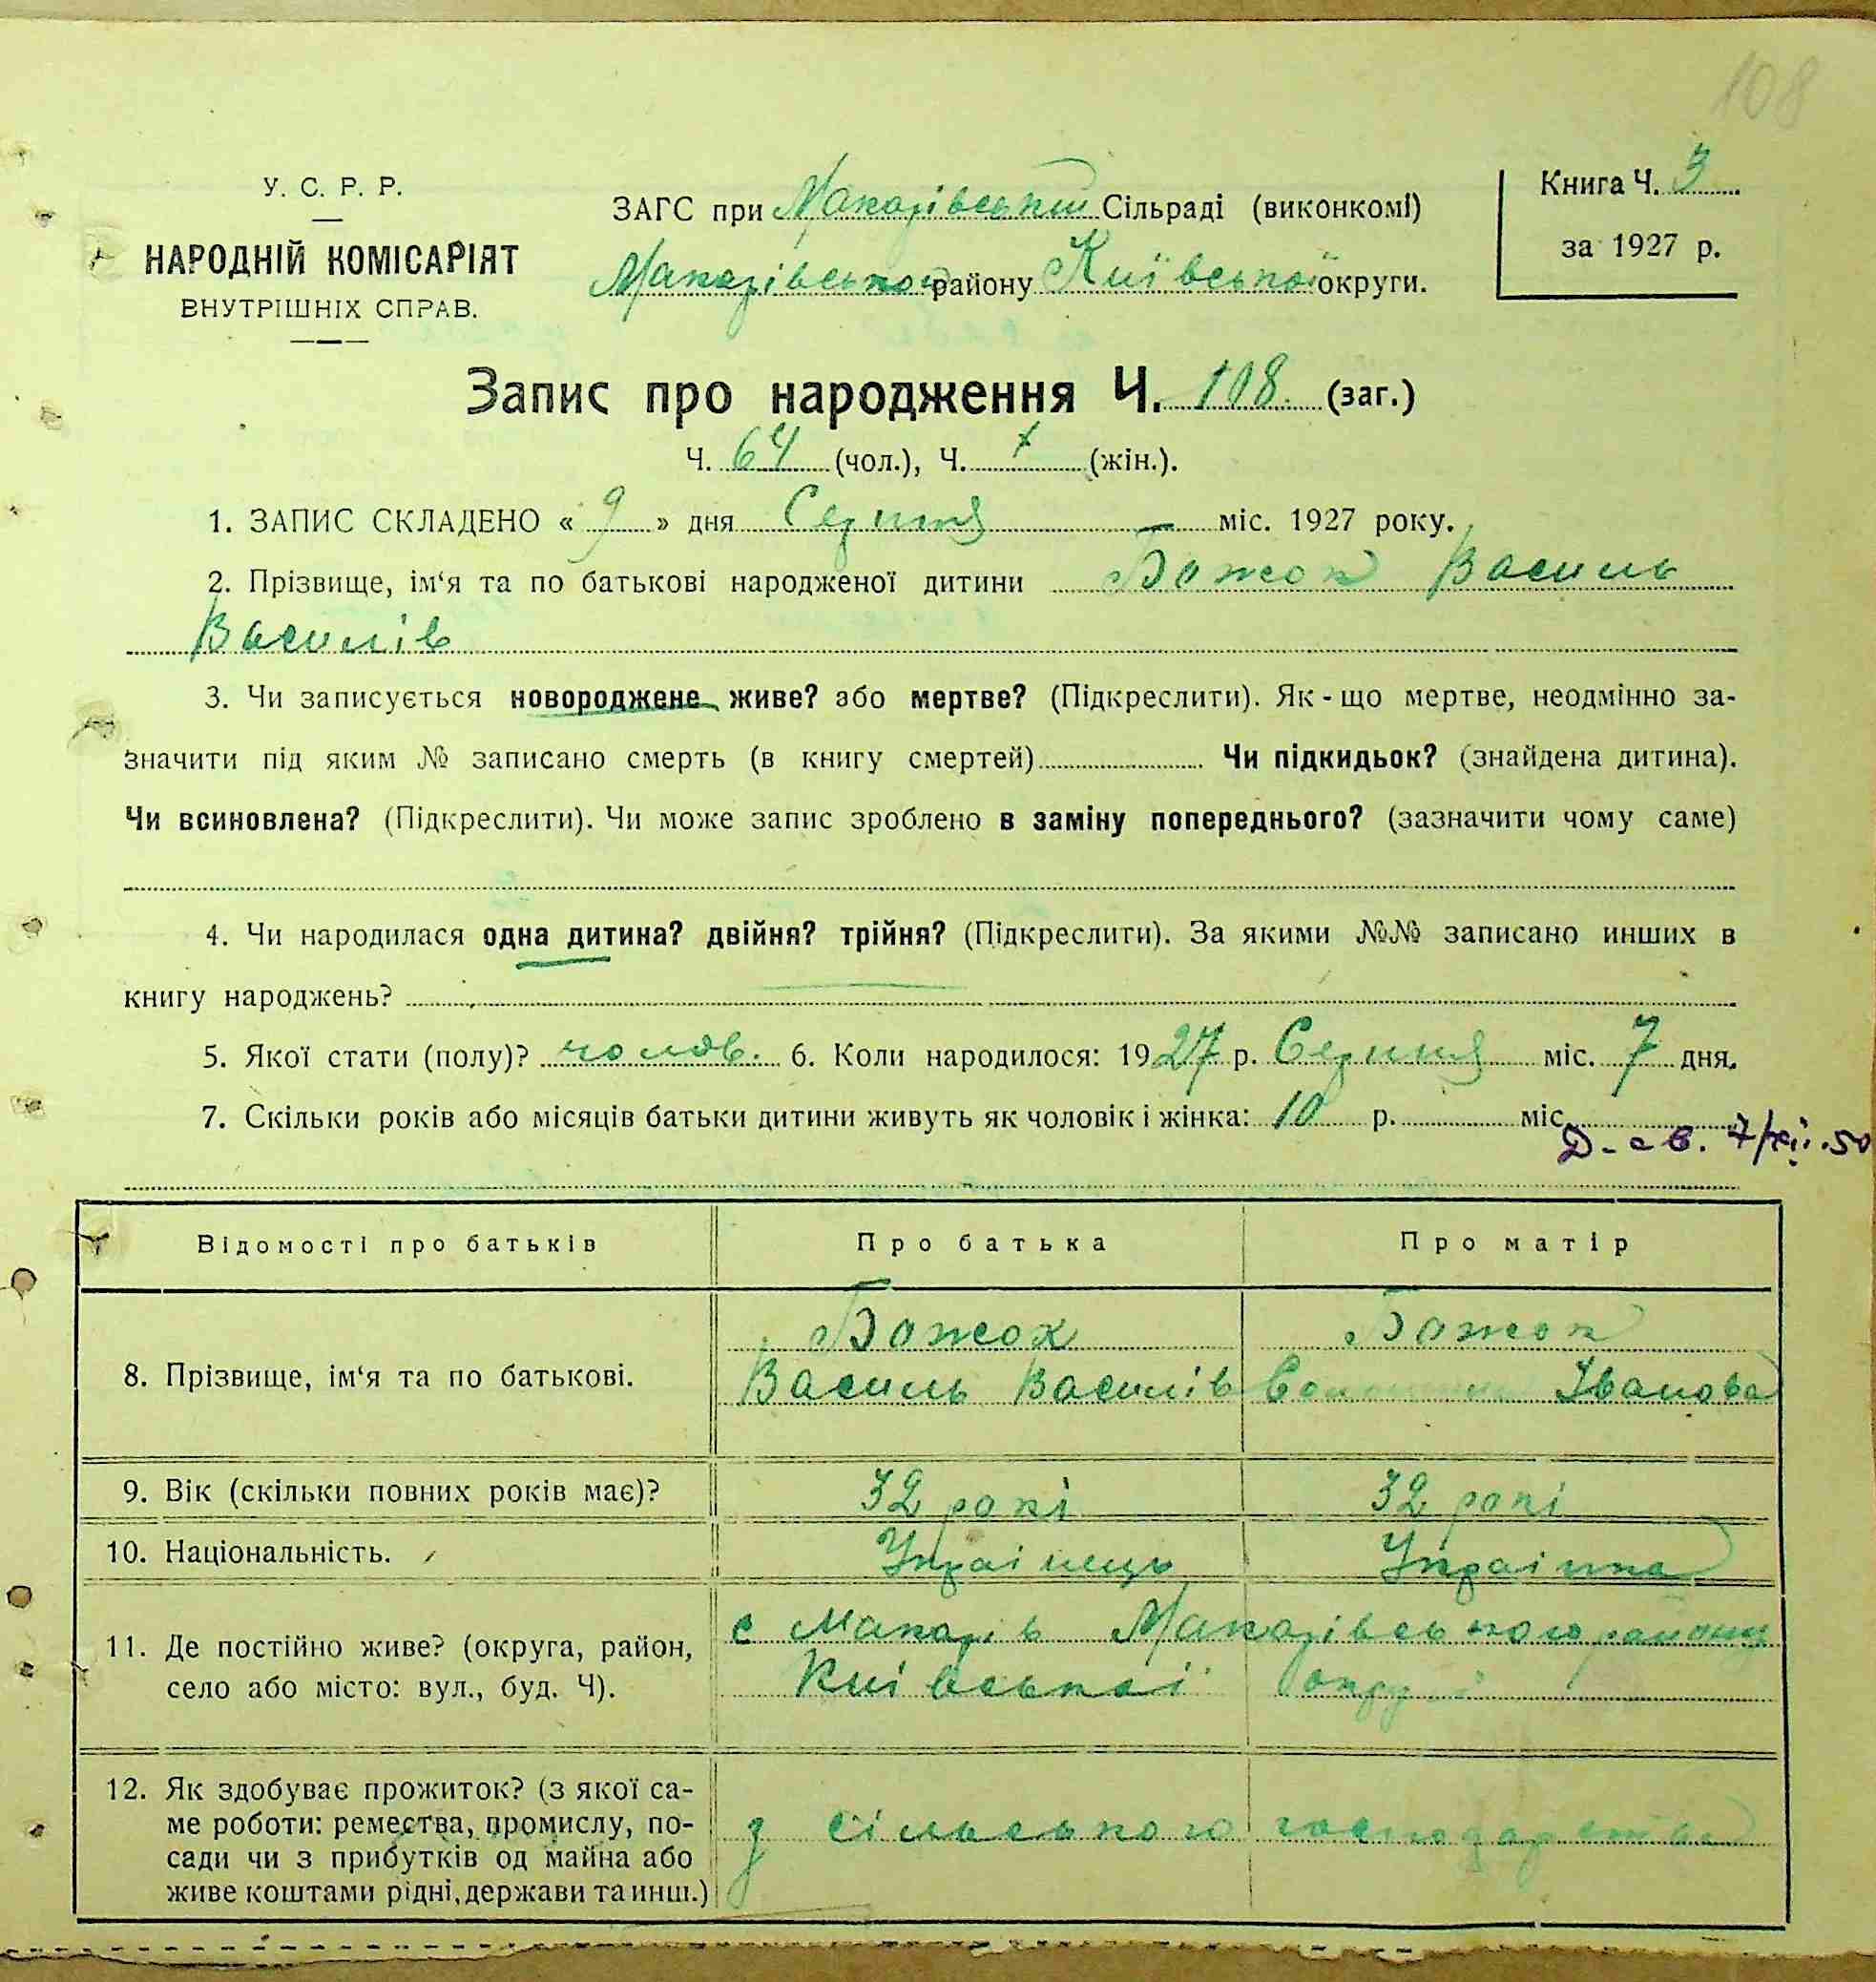 108
У. С. Р. Р.
НАРОДНІЙ КОМІСАРІЯТ
ВНУТРІШНІХ СПРАВ.
ЗАГС при Макарівській Сільраді (виконкомі)
Макарівського району Київської округи.
Книга Ч. 3
за 1927 р.
Запис про народження Ч. 108 (заг.)
Ч. 64 (чол.), Ч. х (жін.).
1. ЗАПИС СКЛАДЕНО « 9 » дня Серпня міс. 1927 року.
2. Прізвище, ім‘я та по батькові народженої дитини Божок Василь
Василів
3. Чи записується новороджене живе? або мертве? (Підкреслити). Як - що мертве, неодмінно за-
значити під яким № записано смерть (в книгу смертей) Чи підкидьок? (знайдена дитина).
Чи всиновлена? (Підкреслити). Чи може запис зроблено в заміну попереднього? (зазначити чому саме)
4. Чи народилася одна дитина? двійня? трійня? (Підкреслити). За якими №№ записано инших в
книгу народжень?
5. Якої стати (полу)? чолов. 6. Коли народилося: 1927 р. Серпня міс. 7 дня.
7. Скільки років або місяців батьки дитини живуть як чоловік і жінка: 10 р. міс.
7/XII.50
Відомості про батьків Про батька Про матір
Божок Божок
8. Прізвище, ім‘я та по батькові. Василь Василів Іванова
9. Вік (скільки повних років має)? 32 рокі 32 рокі
10. Національність. Українець Українка
с Макарів Макарівського району
11. Де постійно живе? (округа, район,
село або місто: вул., буд. Ч). Київської округи
12. Як здобуває прожиток? (з якої са-
ме роботи: ремества, промислу, по-
сади чи з прибутків од майна або
живе коштами рідні, держави та инш.)
з сільського господарства